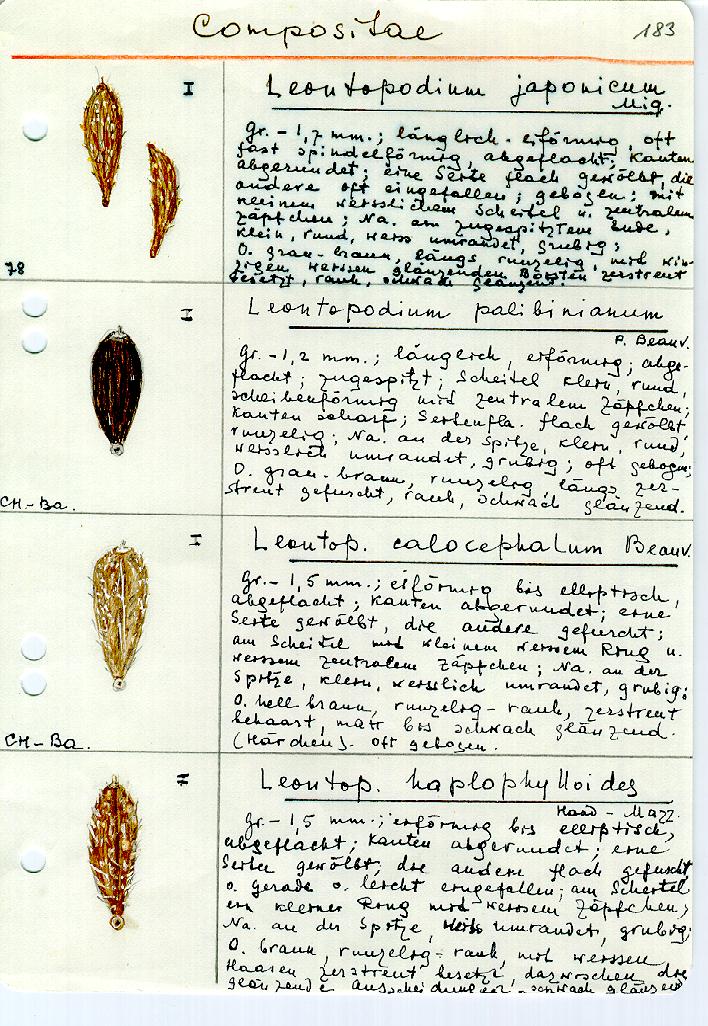 Compositae
183
I
Leontopodium japonicum
Miq.
Gr. - 1,7 mm.; länglich - eiförmig, oft
fast spindelförmig, abgeflacht; Kanten
abgerundet; eine Seite flach gewölbt, die
andere oft eingefallen; gebogen; mit
kleinem weisslichem Scheitel u. zentralem
Zäpfchen; Na. am zugespitztem Ende,
klein, rund, weiss umrandet, grubig;
O. grau-braun, längs runzelig, mit win-
zigen weissen glänzenden Börsten zerstreut
besetzt, rauh, schwach glänzend.
78
I
Leontopodium palibinianum
P. Beauv.
Gr. - 1,2 mm.; länglich, eiförmig; abge-
flacht; zugespitzt; Scheitel klein, rund,
scheibenförmig mit zentralem Zäpfchen;
Kanten scharf; Seitenfla. flach gewölbt
runzelig; Na. an der Spitze, klein, rund,
weisslich umrandet, grubig; oft gebogen;
O. grau-braun, runzelig, längs zer-
streut gefurcht, rauh, schwach glänzend.
CH-Ba.
I
Leontop. calocephalum Beauv.
Gr. - 1,5 mm.; eiförmig bis elliptisch,
abgeflacht; Kanten abgerundet; eine
Seite gewölbt, die andere gefurcht;
am Scheitel mit kleinem weissem Ring u.
weissem zentralem Zäpfchen; Na. an der
Spitze, klein, weisslich umrandet, grubig;
O. hell braun, runzelig - rauh, zerstreut
behaart, matt bis schwach glänzend.
(Härchen). Oft gebogen.
CH-Ba.
I
Leontop. haplophylloides
Hand - Mazz.
Gr. - 1,5 mm.; eiförmig bis elliptisch,
abgeflacht; Kanten abgerundet; eine
Seite gewölbt, die andere flach gefurcht
o. gerade o. leicht eingefallen; am Scheitel
ein kleiner Ring mit weissem Zäpfchen;
Na. an der Spitze, weiss umrandet, grubig;
O. braun, runzelig - rauh, mit weissen,
Haaren zerstreut besetzt, dazwischen die
glänzende schwach glänzend